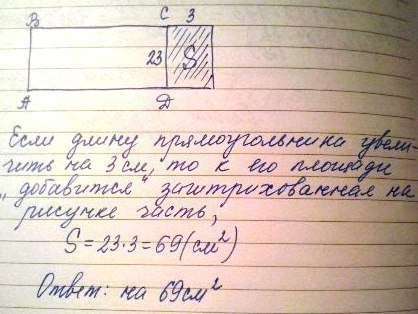 B C 3
23 S
A D
Если длину прямоугольника увели-
чить на 3 см, то к его площади
„добавится“ заштрихованная на
рисунке часть,
S = 23·3 = 69 (см²)
Ответ: на 69 см²